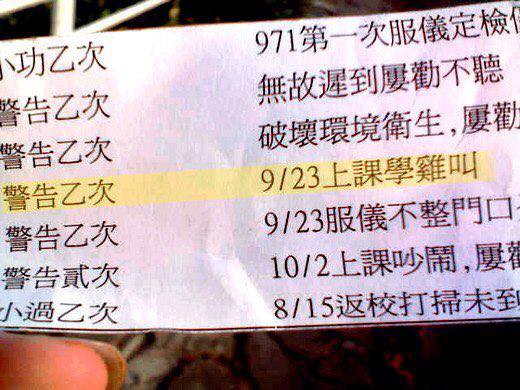 小功乙次 971第一次服儀定檢
警告乙次 無故遲到屢勸不聽
警告乙次 破壞環境衛生,屢勸
警告乙次 9/23上課學雞叫
警告乙次 9/23服儀不整門口
警告貳次 10/2上課吵鬧,屢勸
小過乙次 8/15返校打掃未到